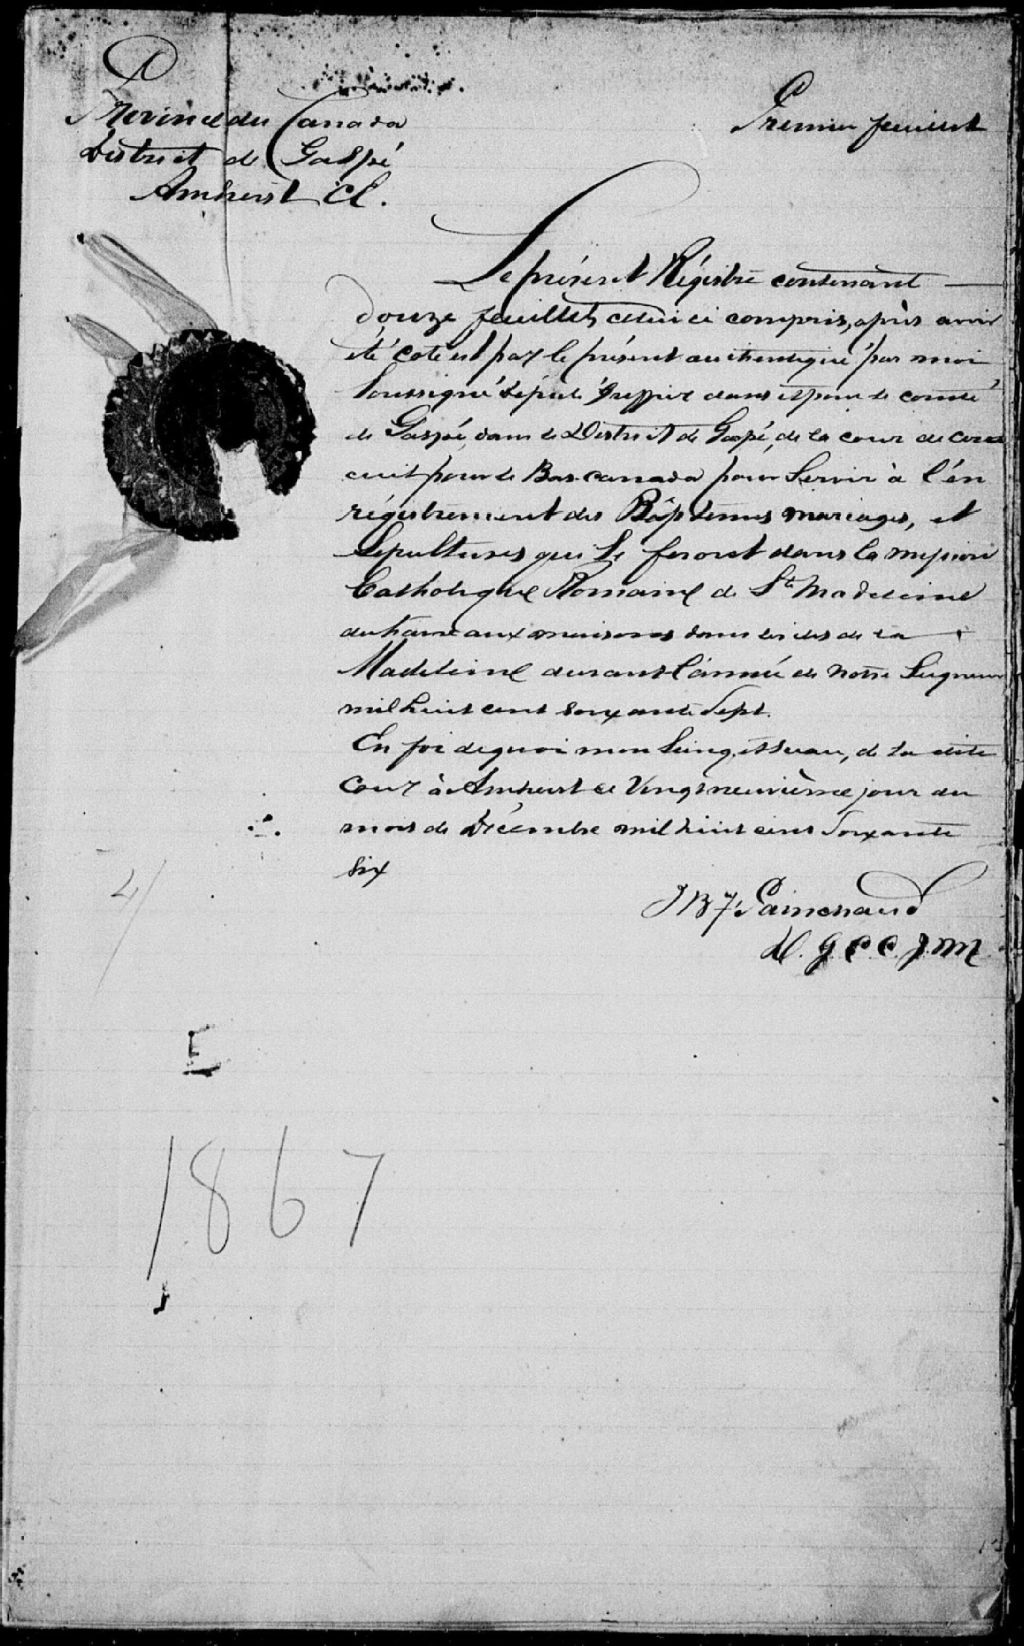 Province du Canada
District de Gaspé
Amherst CE.
Premier feuillet
Le présent Régistre contenant
douze feuillets celui ci compris, après avoir
été coté est par le présent authentiqué par moi
Soussigné député Greffier dans et pour le comté
de Gaspé, dans le District de Gaspé, de la cour de Circ
cuit pour le Bas-canada pour Servir à l'én
régistrement des Bâptemes mariages, et
Sépultures qui Se feront dans la mission
Catholique Romaine de Ste Madeleine
du havre aux maisons dans les iles de la
Madeleine durant l'année de notre Seigneur
mil huit cent soixante Sept.
En foi de quoi mon Seing et Sceau, de la dite
Cour à Amherst ce Vingt neuvième jour du
mois de Décembre mil huit cent Soixante
Six
J B F Painchaud
D. G. C. C. J. M
E
1867